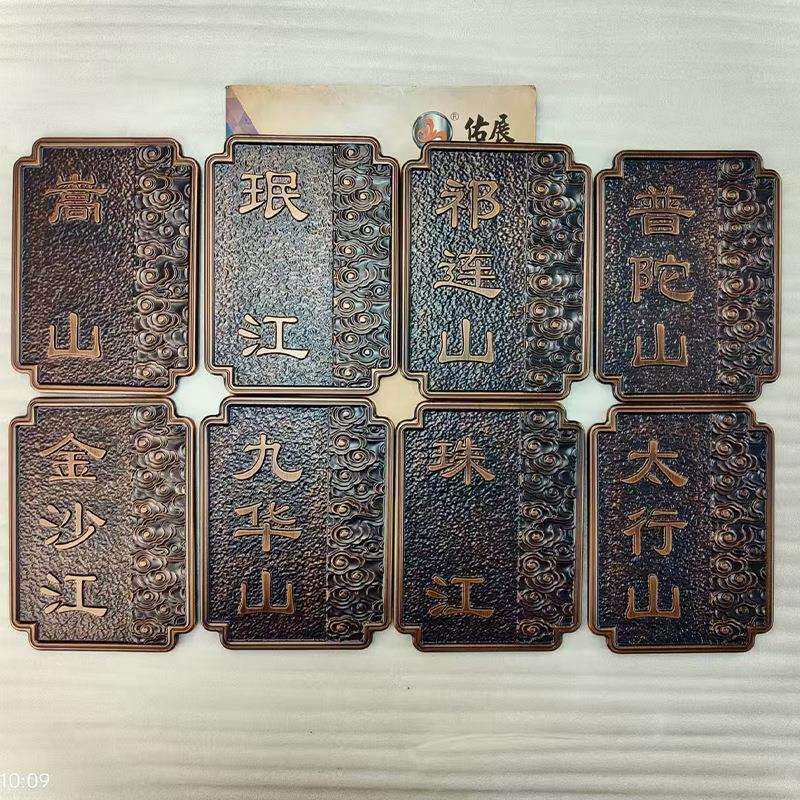 ® 佑展
嵩山
珉江
祁连山
普陀山
金沙江
九华山
珠江
太行山
10:09